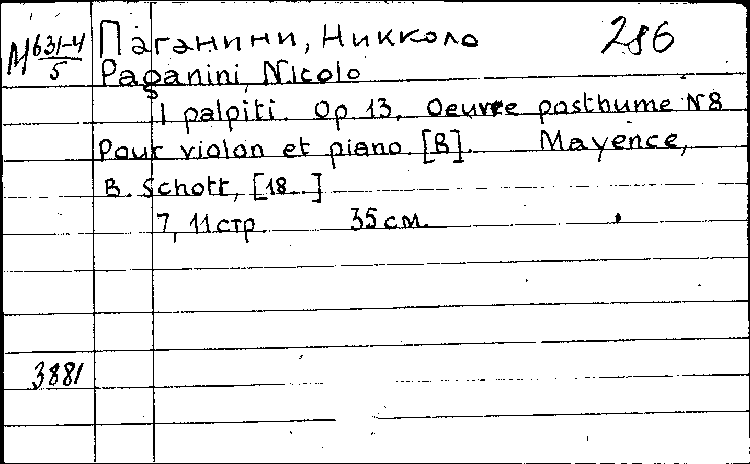 M 631-4/5 Паганини, Никколо 286
Paganini, Nicolo
I palpiti. Op. 13. Oeuvre posthume N 8
Pour violon et piano. [B]. Mayence,
B. Schott, [18..]
7, 11 стр. 35 см.
3881